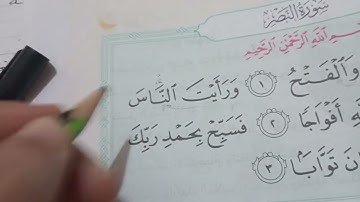 سُورَةُ النَّصْرِ
ـمِ ٱللَّهِ ٱلرَّحْمَٰنِ ٱلرَّحِيمِ
وَٱلْفَتْحُ ١ وَرَأَيْتَ ٱلنَّاسَ
ـهِ أَفْوَاجًا ٢ فَسَبِّحْ بِحَمْدِ رَبِّكَ
ـانَ تَوَّابًا ٣